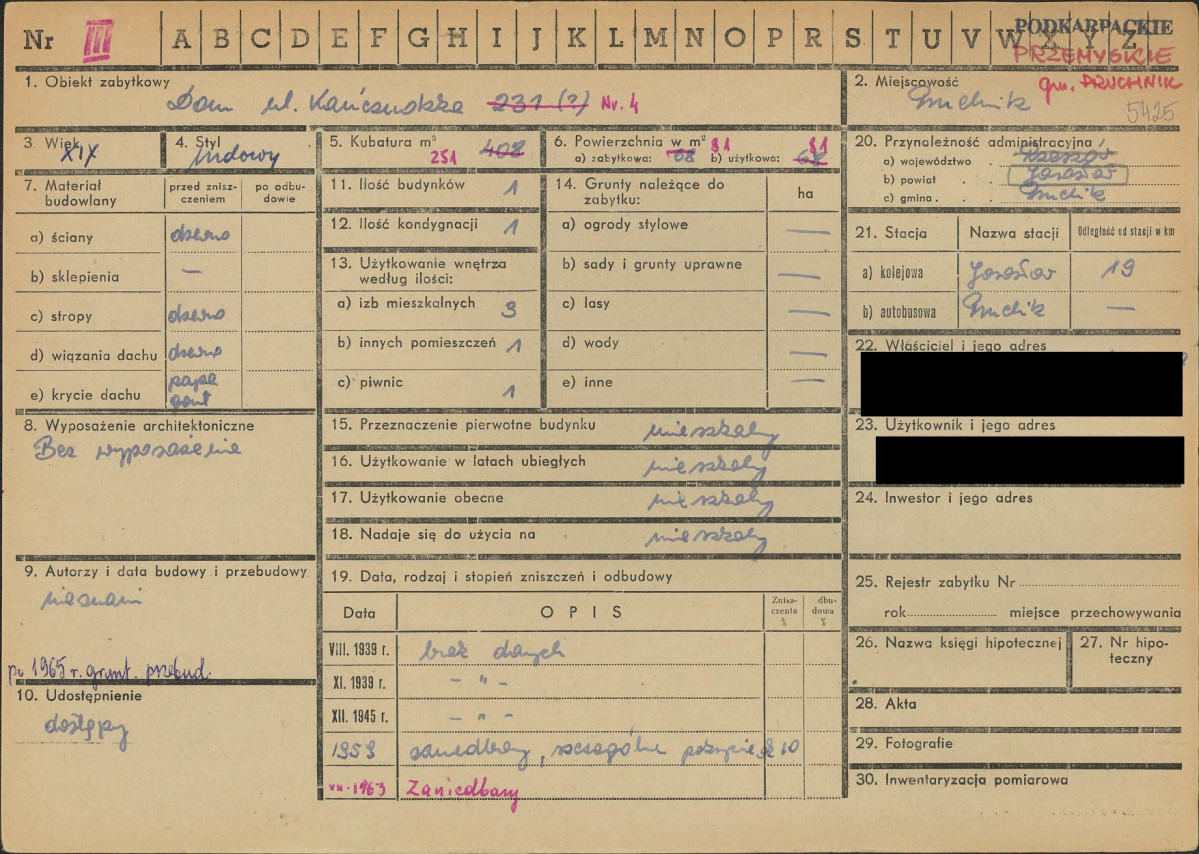 Nr III A B C D E F G H I J K L M N O P R S T U V W X Y Z
PODKARPACKIE
PRZEMYSKIE
gm. PRUCHNIK
1. Obiekt zabytkowy
Dom ul. Kańczudzka 231 (?) Nr. 4
2. Miejscowość
Pruchnik
5425
3. Wiek
XIX
4. Styl
ludowy
5. Kubatura m³
251 408
6. Powierzchnia w m²
a) zabytkowa: 68 81 b) użytkowa: 68 81
7. Materiał budowlany
przed zniszczeniem
po odbudowie
a) ściany drewno
b) sklepienia —
c) stropy drewno
d) wiązania dachu drewno
e) krycie dachu papa gont
8. Wyposażenie architektoniczne
Bez wyposażenia
9. Autorzy i data budowy i przebudowy
nieznani
po 1965 r. grunt. przebud.
10. Udostępnienie
dostępny
11. Ilość budynków 1
12. Ilość kondygnacji 1
13. Użytkowanie wnętrza według ilości:
a) izb mieszkalnych 3
b) innych pomieszczeń 1
c) piwnic 1
14. Grunty należące do zabytku:
ha
a) ogrody stylowe —
b) sady i grunty uprawne —
c) lasy —
d) wody —
e) inne —
15. Przeznaczenie pierwotne budynku mieszkalny
16. Użytkowanie w latach ubiegłych mieszkalny
17. Użytkowanie obecne mieszkalny
18. Nadaje się do użycia na mieszkalny
19. Data, rodzaj i stopień zniszczeń i odbudowy
Data OPIS Zniszczenia % dbudowa %
VIII. 1939 r. brak danych
XI. 1939 r. - " -
XII. 1945 r. - " -
1959 zaniedbany, szczególnie 10
VII. 1963 Zaniedbany
20. Przynależność administracyjna
a) województwo . Rzeszów
b) powiat . . Jarosław
c) gmina . . Pruchnik
21. Stacja Nazwa stacji Odległość od stacji w km
a) kolejowa Jarosław 19
b) autobusowa Pruchnik —
22. Właściciel i jego adres
23. Użytkownik i jego adres
24. Inwestor i jego adres
25. Rejestr zabytku Nr
rok miejsce przechowywania
26. Nazwa księgi hipotecznej
27. Nr hipoteczny
28. Akta
29. Fotografie
30. Inwentaryzacja pomiarowa